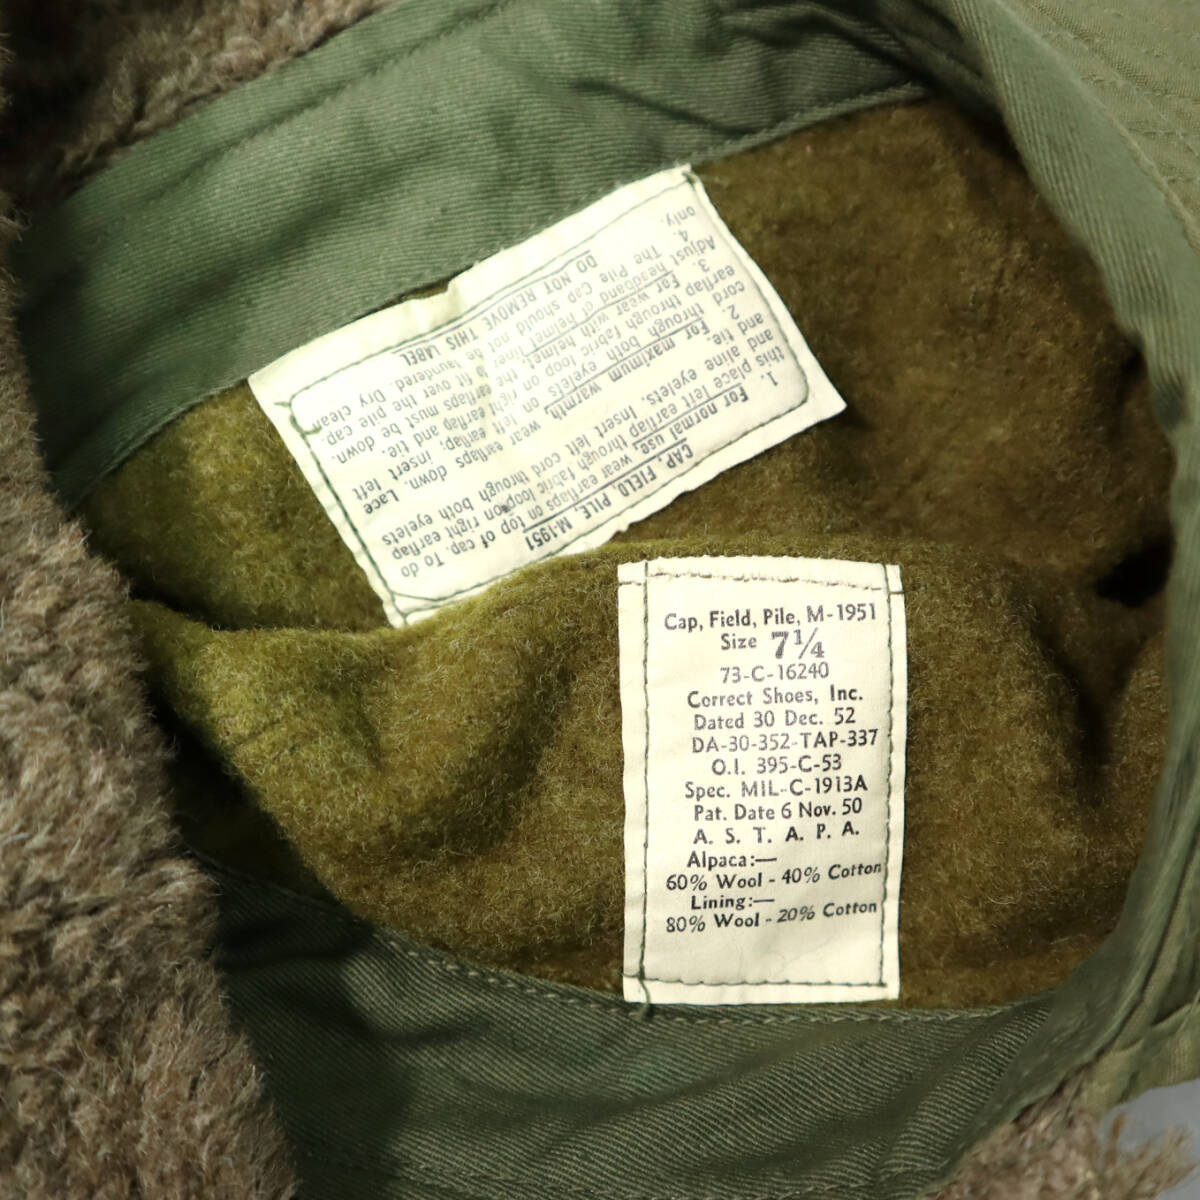 CAP, FIELD, PILE, M-1951
1. For normal use, wear earflaps on top of cap. To do
this place left earflap through fabric loop on right earflap
and aline eyelets. Insert left cord through both eyelets
and tie.
2. For maximum warmth wear earflaps down. Lace
cord through both eyelets on left earflap; insert left
earflap through fabric loop on the right earflap and tie.
3. For wear with helmet liner earflaps must be down.
Adjust headband of helmet liner to fit over the pile cap.
4. The Pile Cap should not be laundered. Dry clean
only.
DO NOT REMOVE THIS LABEL
Cap, Field, Pile, M-1951
Size 7¼
73-C-16240
Correct Shoes, Inc.
Dated 30 Dec. 52
DA-30-352-TAP-337
O.I. 395-C-53
Spec. MIL-C-1913A
Pat. Date 6 Nov. 50
A. S. T. A. P. A.
Alpaca:—
60% Wool - 40% Cotton
Lining:—
80% Wool - 20% Cotton